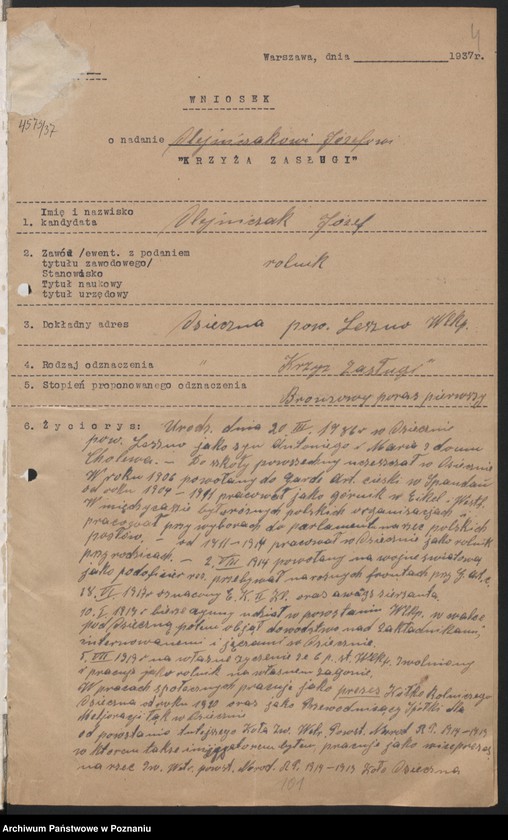 4
Warszawa, dnia 1937r.
4573/37
WNIOSEK
o nadanie Olejniczakowi Józefowi
"KRZYŻA ZASŁUGI"
1. Imię i nazwisko kandydata Olejniczak Józef
2. Zawód /ewent. z podaniem
tytułu zawodowego/ rolnik
Stanowisko
Tytuł naukowy
tytuł urzędowy
3. Dokładny adres Osieczna pow. Leszno Wlkp.
4. Rodzaj odznaczenia "Krzyż Zasługi"
5. Stopień proponowanego odznaczenia
Bronzowy poraz pierwszy
6. Życiorys: Urodz. dnia 20 III. 1886 w Osiecznie
pow. Leszno jako syn Antoniego i Marii z domu
Cholewa. – Do szkoły powszedniej uczęszczał w Osiecznie
W roku 1906 powołany do Gardo Art. cieski w Spandau
od roku 1909 - 1911 pracował jako górnik w Eikel - Westf.
W międzyczasie był w różnych polskich organizacjach
pracował przy wyborach do parlamentu na rzec polskich
posłów. – od 1911 - 1914 pracował w Osiecznie jako rolnik
przy rodzicach. – 2. VIII 1914 powołany na wojnę światową
jako podoficer rez. przebywał na różnych frontach przy
E. K. II Kl. oraz awans sierżanta
10. I. 1919 r bierze czynny udział w powstaniu Wlkp. w walce
pod Osieczną potem objął dowództwo nad zakładnikami,
internowanemi i jeńcami w Osiecznie.
5. VII 1919 r na własne życzenie ze zwolniony
i pracuje jako rolnik na własnem zagonie.
W pracach społecznych pracuje jako prezes Kółka Rolniczego
Osieczna od roku 1920 oraz jako Przewodniczący Spółki dla
Meljoracji łąk w Osiecznie
od powstania tutejszego Koła Zw. Wetr. Powst. Narod R.P. 1914-1919
w którem także inicjatorem był, pracuje jako wiceprezes
na rzec Zw. Wetr. powst. Narod. R.P. 1914 - 1919 Koło Osieczna
101
Archiwum Państwowe w Poznaniu
Archiwum Państwowe w Poznaniu